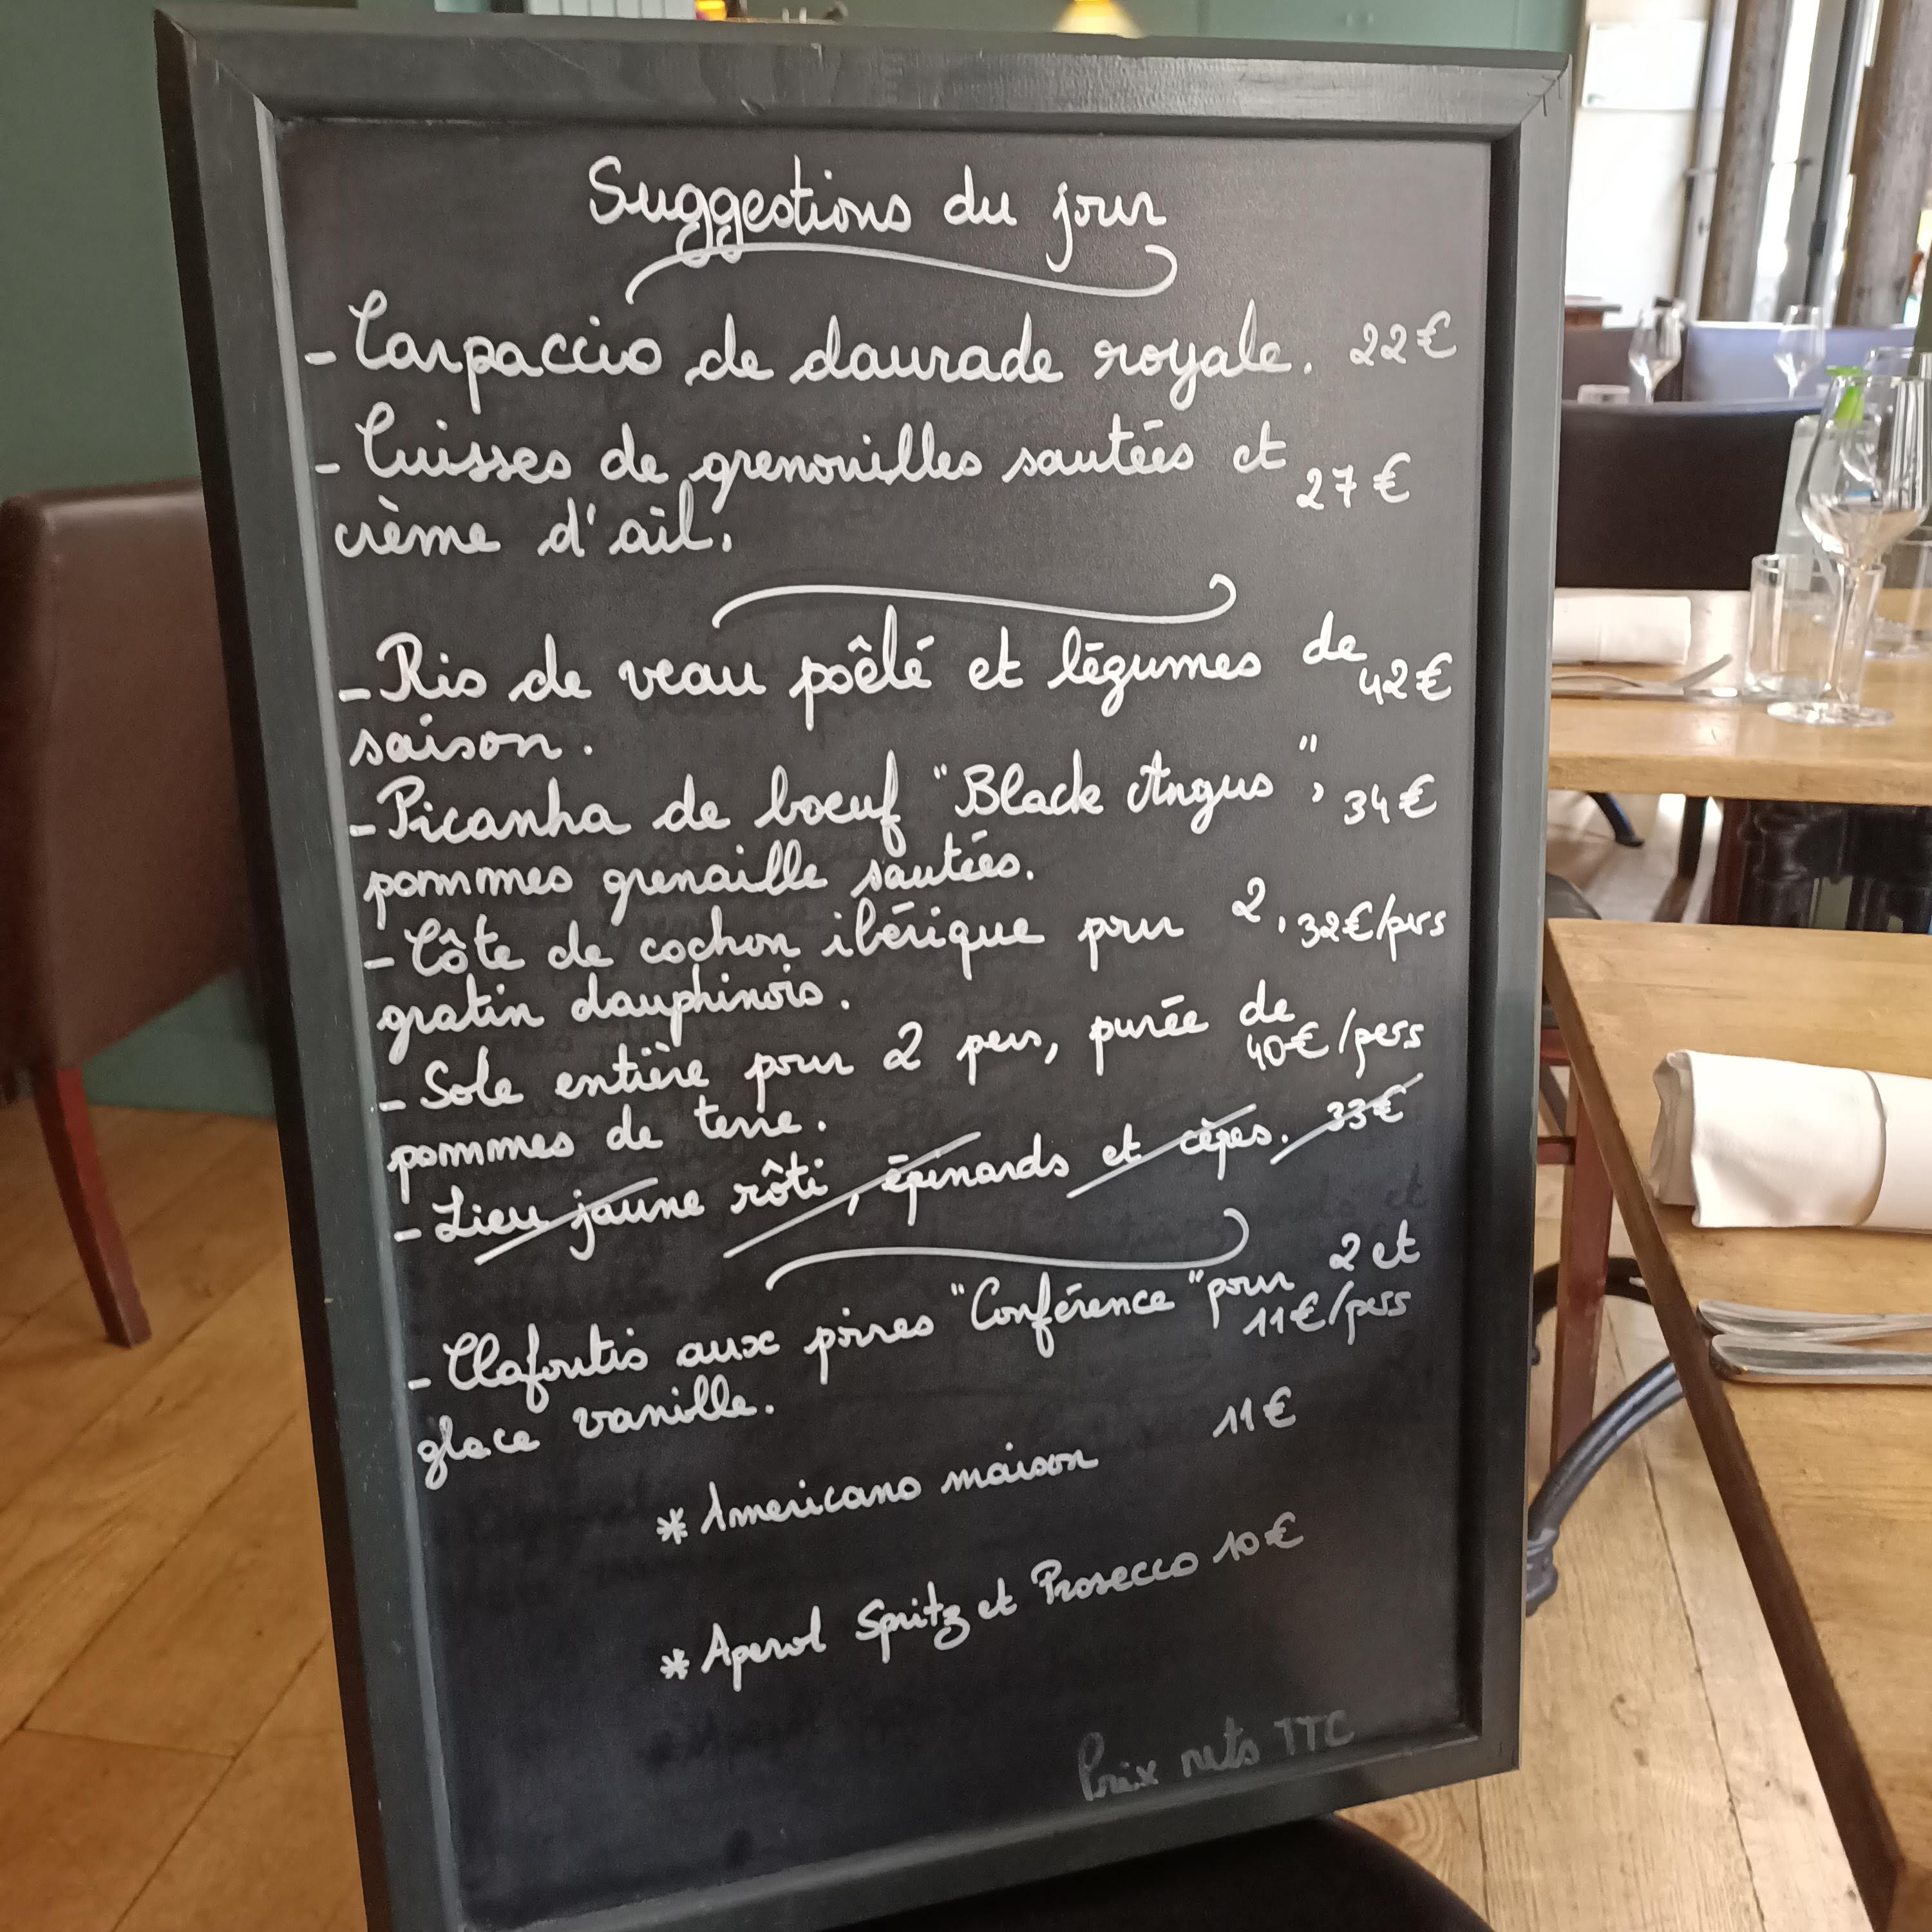 Suggestions du jour
- Carpaccio de daurade royale. 22€
- Cuisses de grenouilles sautées et 27€
crème d'ail.
- Ris de veau poêlé et légumes de 42€
saison.
- Picanha de boeuf "Black Angus", 34€
pommes grenaille sautées.
- Côte de cochon ibérique pour 2, 32€/pers
gratin dauphinois.
- Sole entière pour 2 pers, purée de 40€/pers
pommes de terre.
- Lieu jaune rôti, épinards et cèpes. 33€
- Clafoutis aux poires "Conférence" pour 2 et 11€/pers
glace vanille.
* Americano maison 11€
* Aperol Spritz et Prosecco 10€
Prix nets TTC